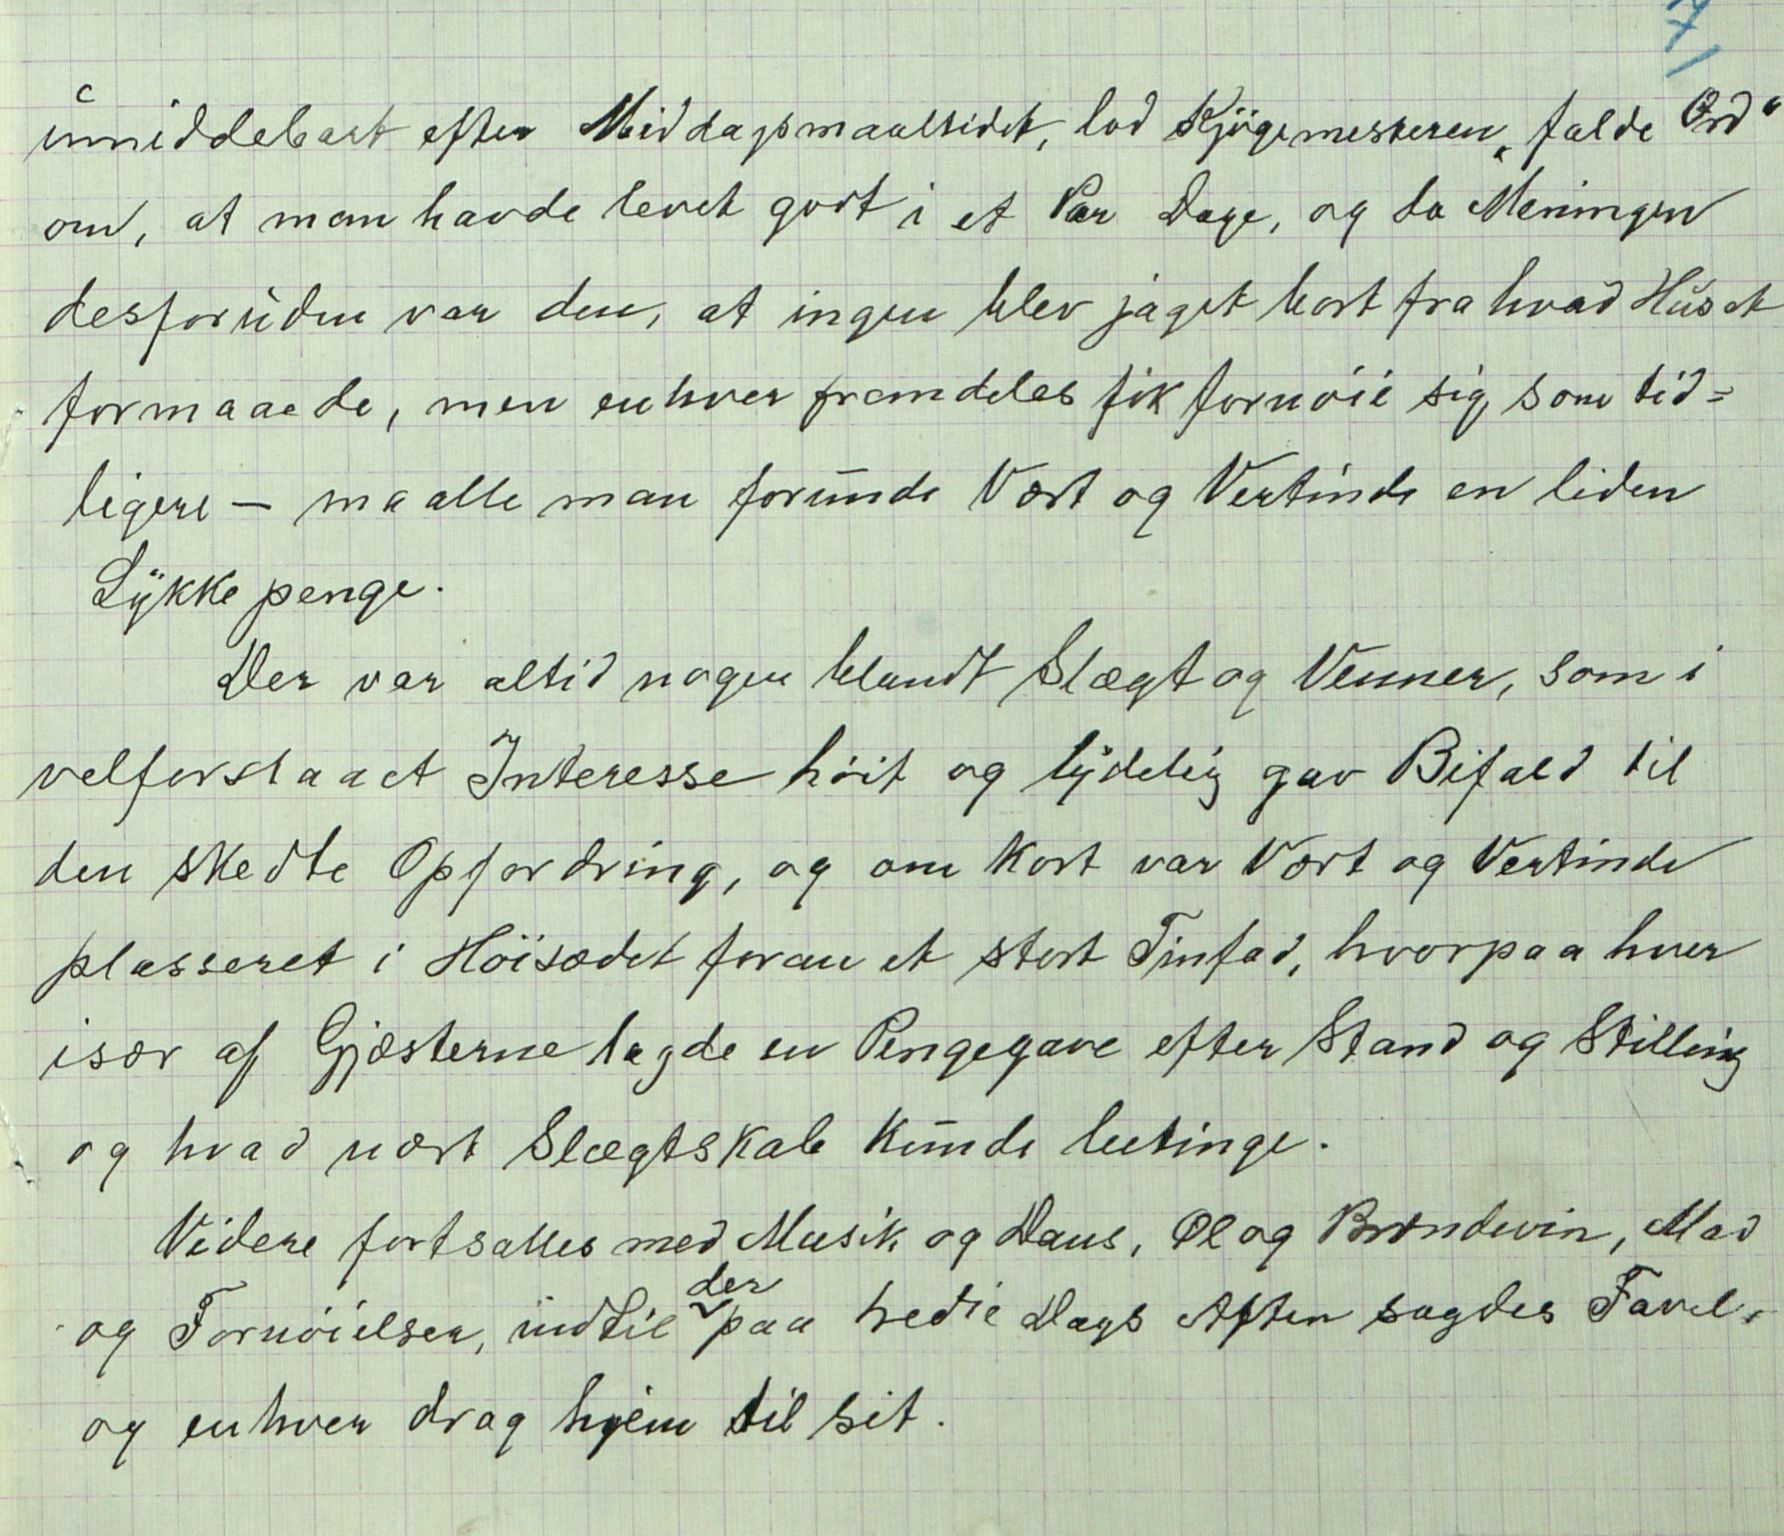 umiddelbart efter Middagsmaaltidet, lod Kjøgemesteren „falde Ord“
om, at man havde levet godt i et Par Dage, og da Meningen
desforuden var den, at ingen blev jaget bort fra hvad Huset
formaaede, men enhver fremdeles fik fornøie sig som tid=
ligere — maatte man forunde Vært og Vertinde en liden
Lykkepenge.
Der var altid nogen blandt Slægt og Venner, som i
velforstaaet Interesse høit og lydelig gav Bifald til
den skedte Opfordring, og om kort var Vært og Vertinde
plasseret i Høisædet foran et stort Tinfad, hvorpaa hver
især af Gjæsterne lagde en Pengegave efter Stand og Stilling
og hvad nært Slægtskab kunde betinge.
Videre fortsattes med Musik og Dans, Øl og Brændevin, Mad
og Fornøielser, indtil der paa tredie Dags Aften sagdes Farvel,
og enhver drog hjem til sit.